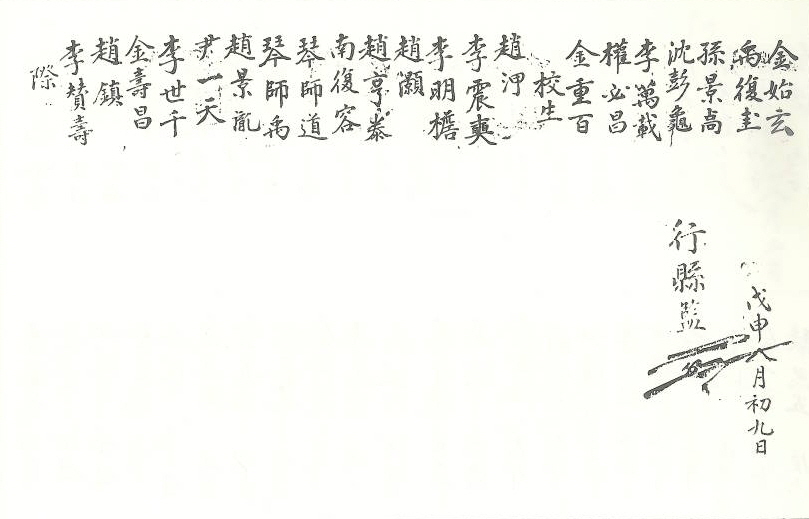 金始玄
禹復圭
孫景卨
沈彭龜
李萬載
權必昌
金重百
校生
趙㴌
李震奭
李明檐
趙灝
趙亨泰
南復容
琴師道
琴師禹
趙景胤
尹一天
李世千
金壽昌
趙鎮
李贊壽
際
戊申八月初九日
行縣監